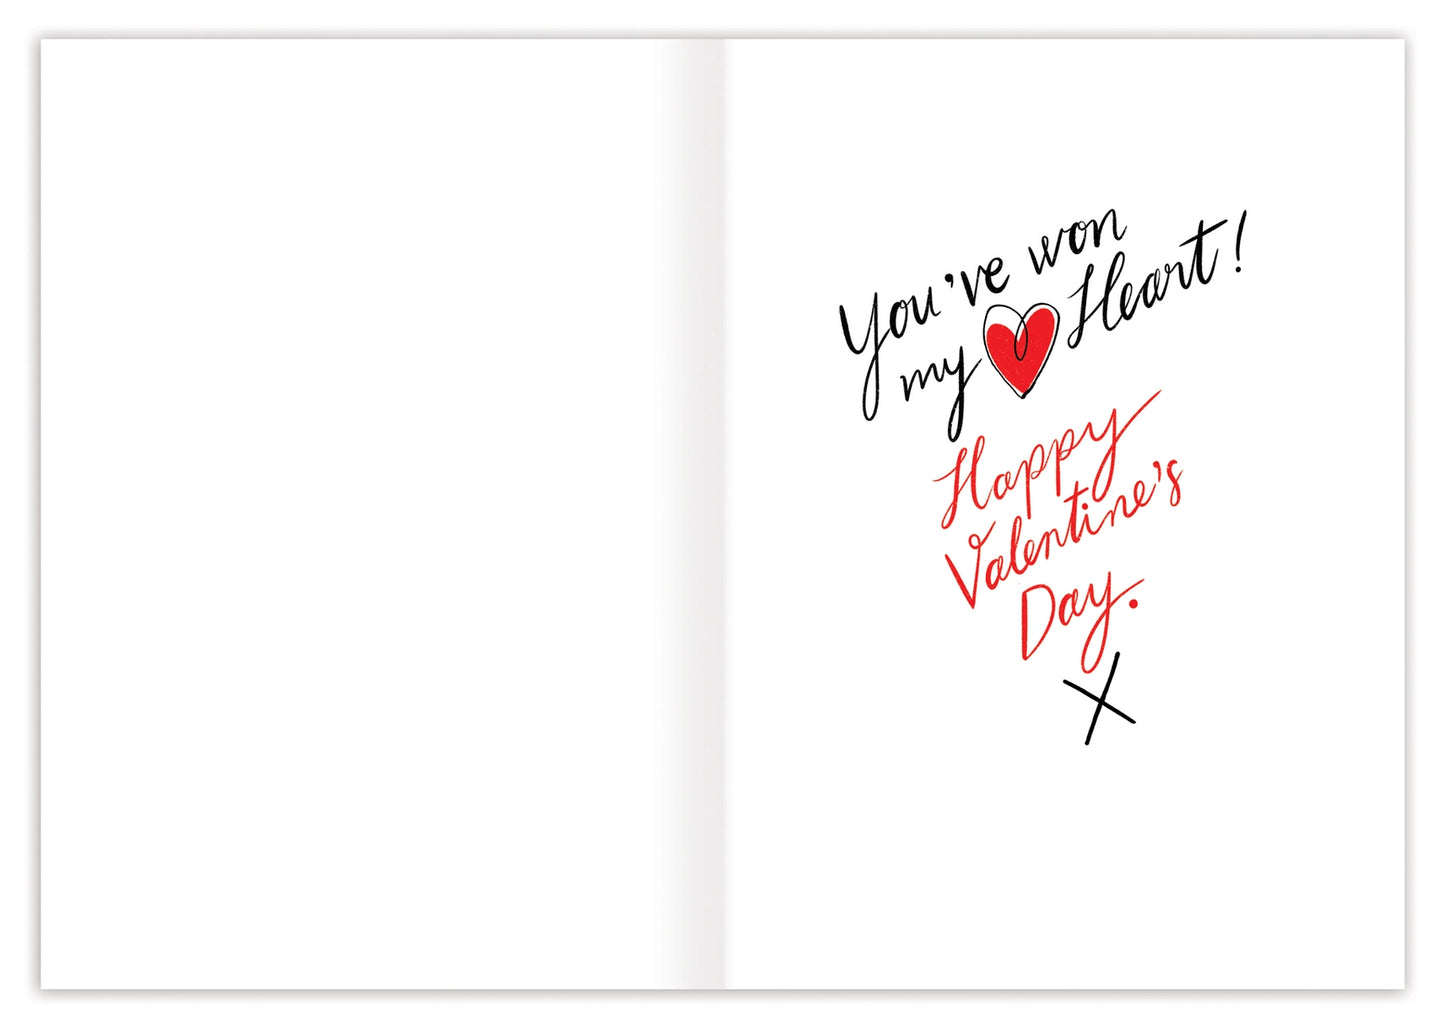 You've won
my Heart!
Happy
Valentine's
Day.
X